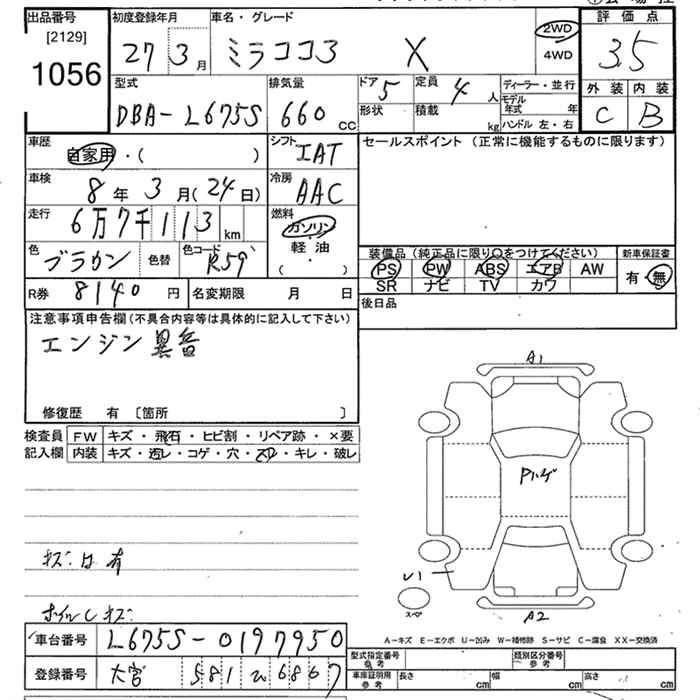 出品番号
[2129]
1056
初度登録年月
27 3月
車名・グレード
ミラココア X
2WD
4WD
評価点
3.5
外装 内装
C B
型式
DBA-L675S
排気量
660 cc
ドア 5
定員 4人
形状
積載 kg
ディーラー・並行
モデル年式 年
ハンドル 左・右
車歴
自家用・( )
シフト
IAT
セールスポイント(正常に機能するものに限ります)
車検
8年3月(24日)
冷房
AAC
走行
6万7千113km
燃料
ガソリン
軽油
( ・ )
色
ブラウン
色替
色コード
R59
装備品(純正品に限り○をつけてください)
PS PW ABS エアB AW
SR ナビ TV カワ
新車保証書
有・無
R券 8140円
名変期限 月 日
後日品
注意事項申告欄(不具合内容等は具体的に記入して下さい)
エンジン異音
修復歴 有〔箇所 〕
検査員記入欄
FW キズ・飛石・ヒビ割・リペア跡・×要
内装 キズ・汚レ・コゲ・穴・スレ・キレ・破レ
A1
Pハゲ
キズ 凹 有
U1
スペア
A2
ホイルしキズ
A-キズ E-エクボ U-凹み W-補修跡 S-サビ C-腐食 XX-交換済
車台番号 L675S-0197950
登録番号 大宮 581 6867
型式指定番号 参考
類別区分番号 参考
車庫証明用 参考
長さ cm 幅 cm 高さ cm